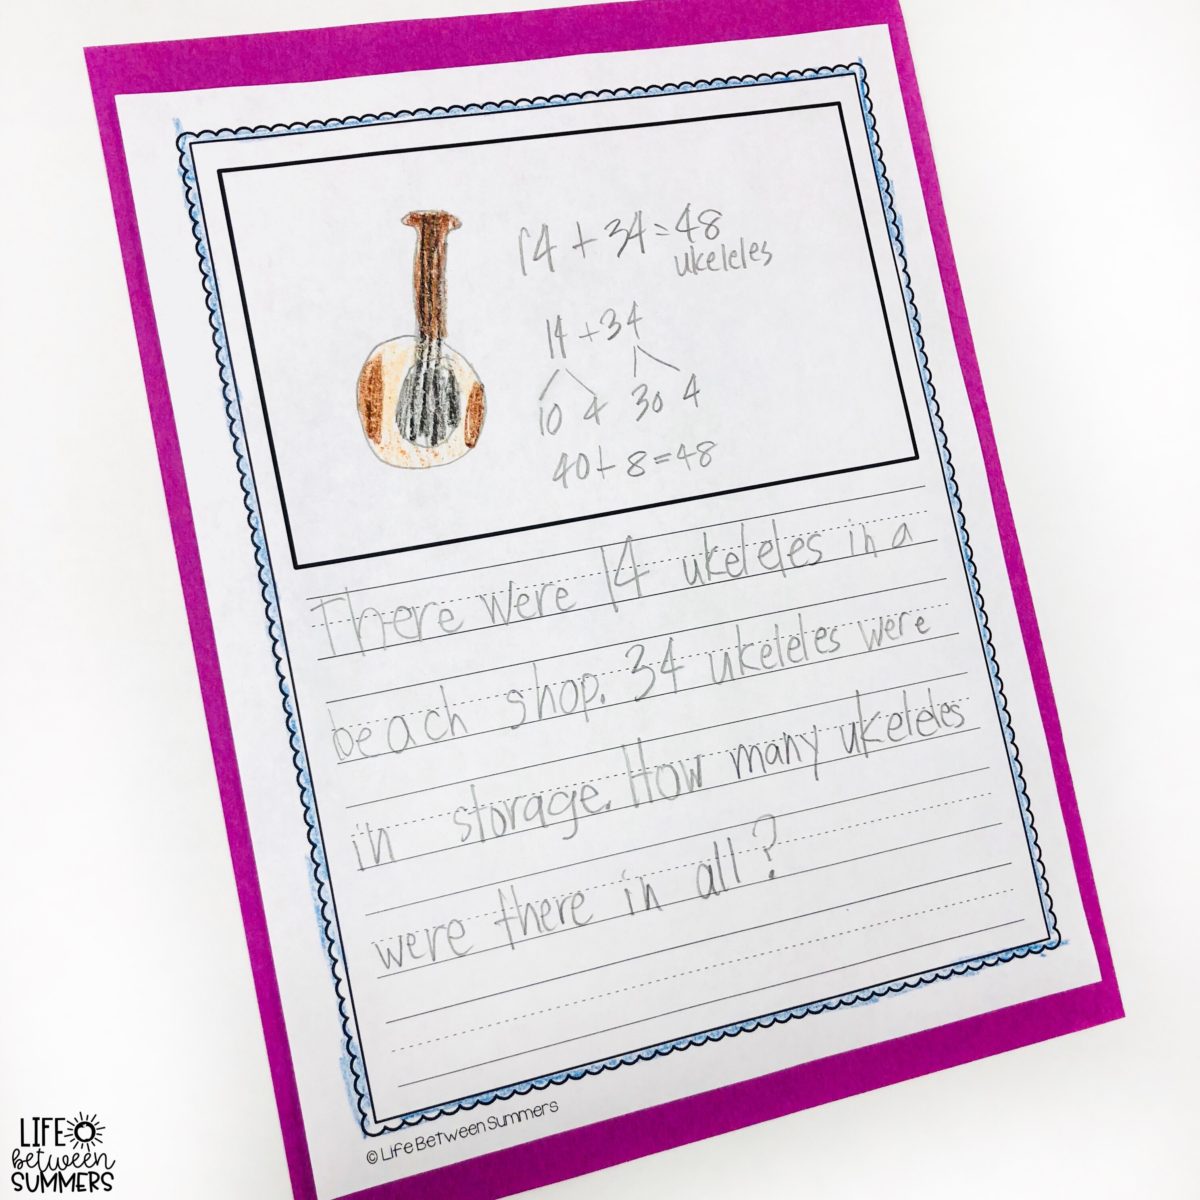 14 + 34 = 48
ukeleles
14 + 34
10 4 30 4
40 + 8 = 48
There were 14 ukeleles in a
beach shop. 34 ukeleles were
in storage. How many ukeleles
were there in all?
© Life Between Summers
LIFE
between
SUMMERS